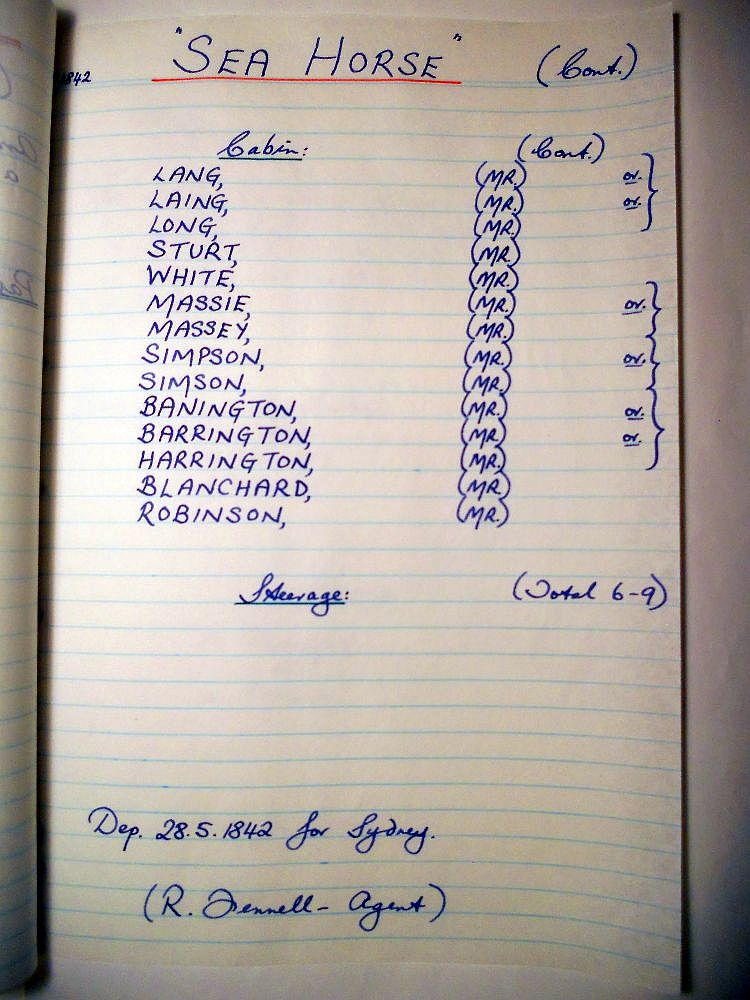 1842 "SEA HORSE" (Cont.)
Cabin: (Cont.)
LANG, (MR.) or.
LAING, (MR.) or.
LONG, (MR.)
STURT, (MR.)
WHITE, (MR.)
MASSIE, (MR.) or.
MASSEY, (MR.)
SIMPSON, (MR.) or.
SIMSON, (MR.)
BANINGTON, (MR.) or.
BARRINGTON, (MR.) or.
HARRINGTON, (MR.)
BLANCHARD, (MR.)
ROBINSON, (MR.)
Steerage: (Total 6-9)
Dep. 28.5.1842 for Sydney.
(R. Fennell - Agent)